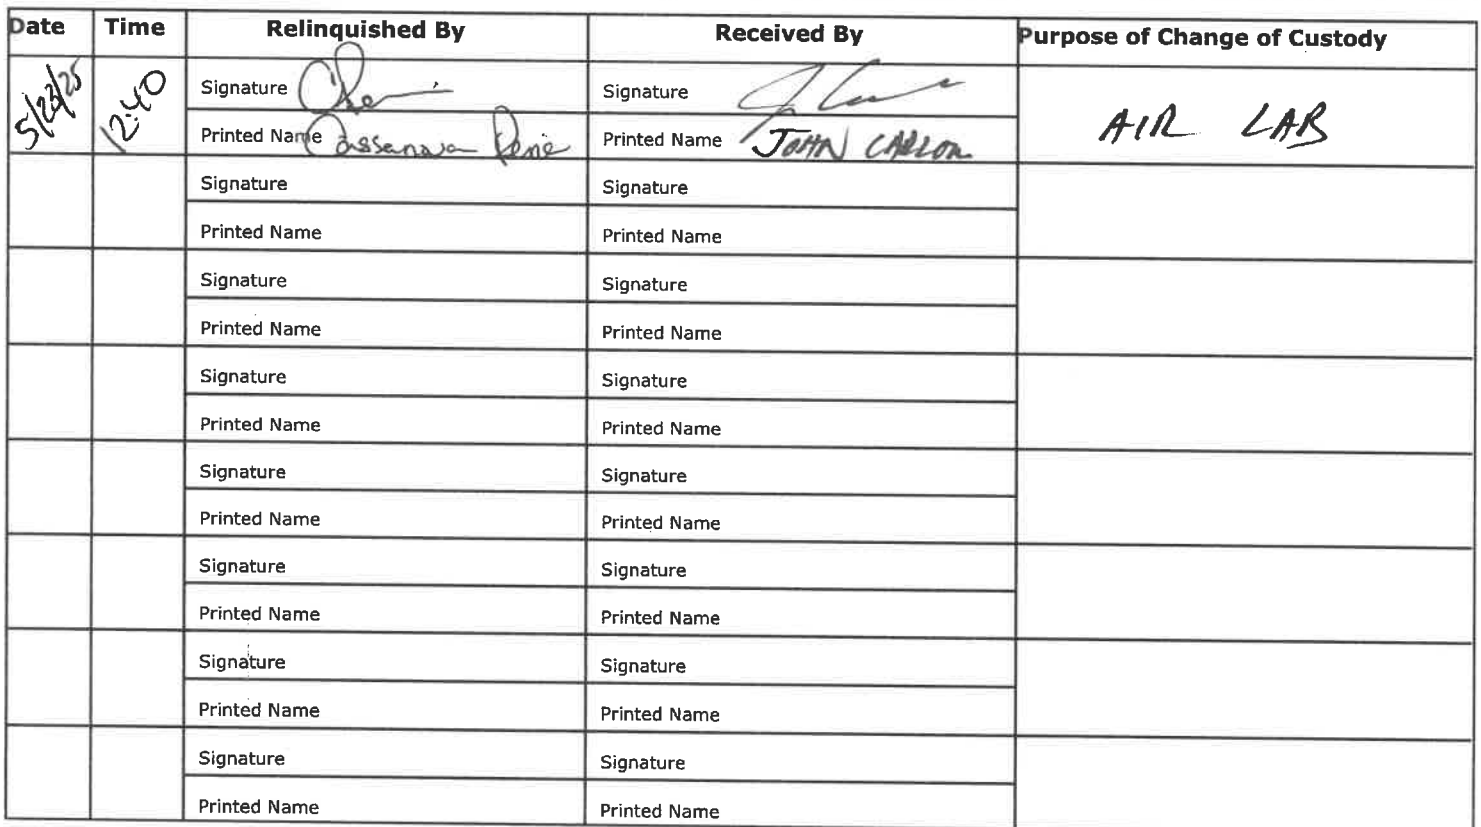 Date Time Relinquished By Received By Purpose of Change of Custody
5/23/25 12:40 Signature Signature AIR LAB
Printed Name Cassanova Rene Printed Name JOHN CARLON
Signature Signature
Printed Name Printed Name
Signature Signature
Printed Name Printed Name
Signature Signature
Printed Name Printed Name
Signature Signature
Printed Name Printed Name
Signature Signature
Printed Name Printed Name
Signature Signature
Printed Name Printed Name
Signature Signature
Printed Name Printed Name